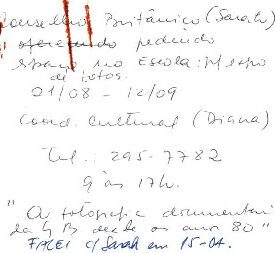 Conselho Britânico (Sarah)
oferecendo pedindo
espaço no Escola: p/ expo
de fotos.
01/08 - 12/09
Coord. Cultural (Diana)
Tel.: 295-7782
9 às 17h.
"A fotografia documental
da GB desde os anos 80"
FALEI c/ Sarah em 15-04.